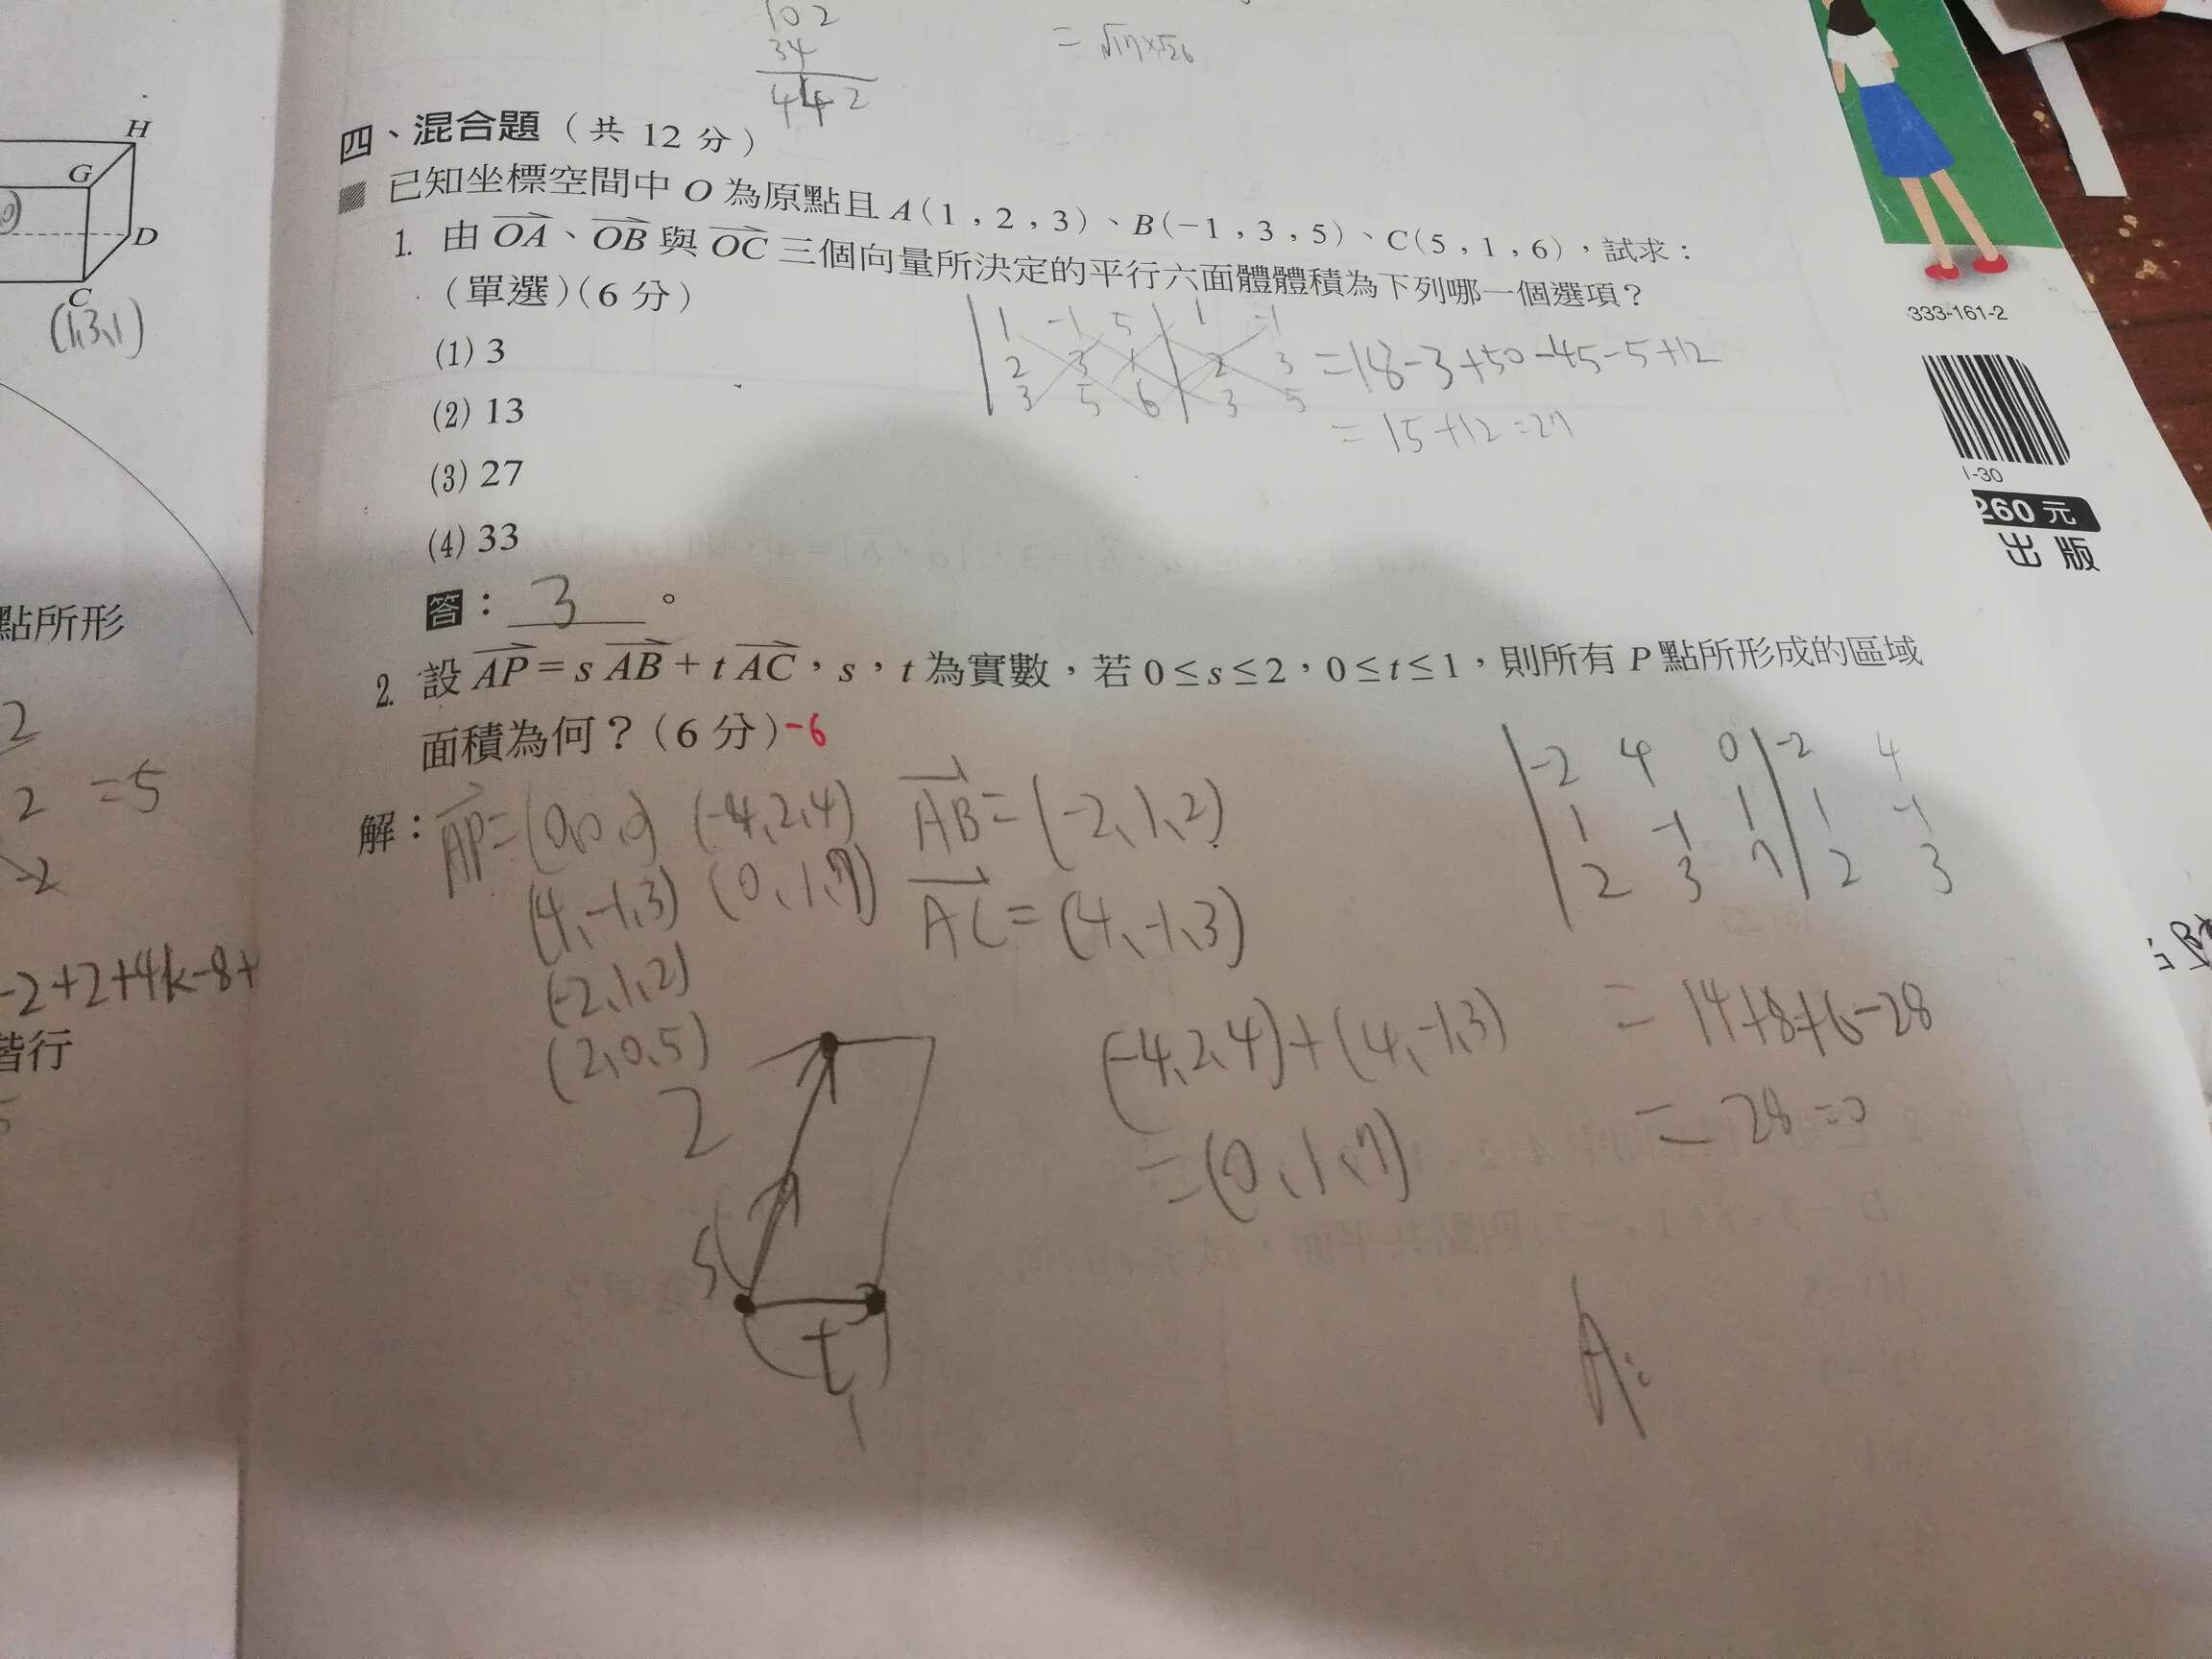 102
34
442
= √17×√26
四、混合題（共 12 分）
已知坐標空間中 O 為原點且 A(1，2，3)、B(−1，3，5)、C(5，1，6)，試求：
1. 由 OA、OB 與 OC 三個向量所決定的平行六面體體積為下列哪一個選項？
（單選）(6 分)
(1) 3
(2) 13
(3) 27
(4) 33
1 -1 5 1 -1
2 3 1 2 3
3 5 6 3 5
= 18-3+50-45-5+12
= 15+12=27
答：3。
2. 設 AP = s AB + t AC，s，t 為實數，若 0≤s≤2，0≤t≤1，則所有 P 點所形成的區域
面積為何？(6 分) -6
解：AP=(0,0,0) (-4,2,4) AB=(-2,1,2)
(4,-1,3) (0,1,7) AC=(4,-1,3)
(-2,1,2)
(2,0,5)
2
s
t
1
(-4,2,4)+(4,-1,3)
=(0,1,7)
-2 4 0 -2 4
1 -1 1 1 -1
2 3 7 2 3
= 14+8+6-28
= 28=0
A:
H
G
D
C
(1,3,1)
點所形
2
2 =5
-2
-2+2+4k-8+
皆行
333-161-2
1-30
260 元
出 版